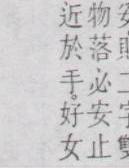 二字雙
物落必安止
近於手。好女